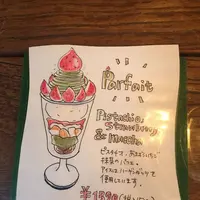 Parfait
Pistachio,
Strawberry
& Matcha
ピスタチオ、
抹茶のパフェ。
アイスはハーゲンダッツを
使用しています。